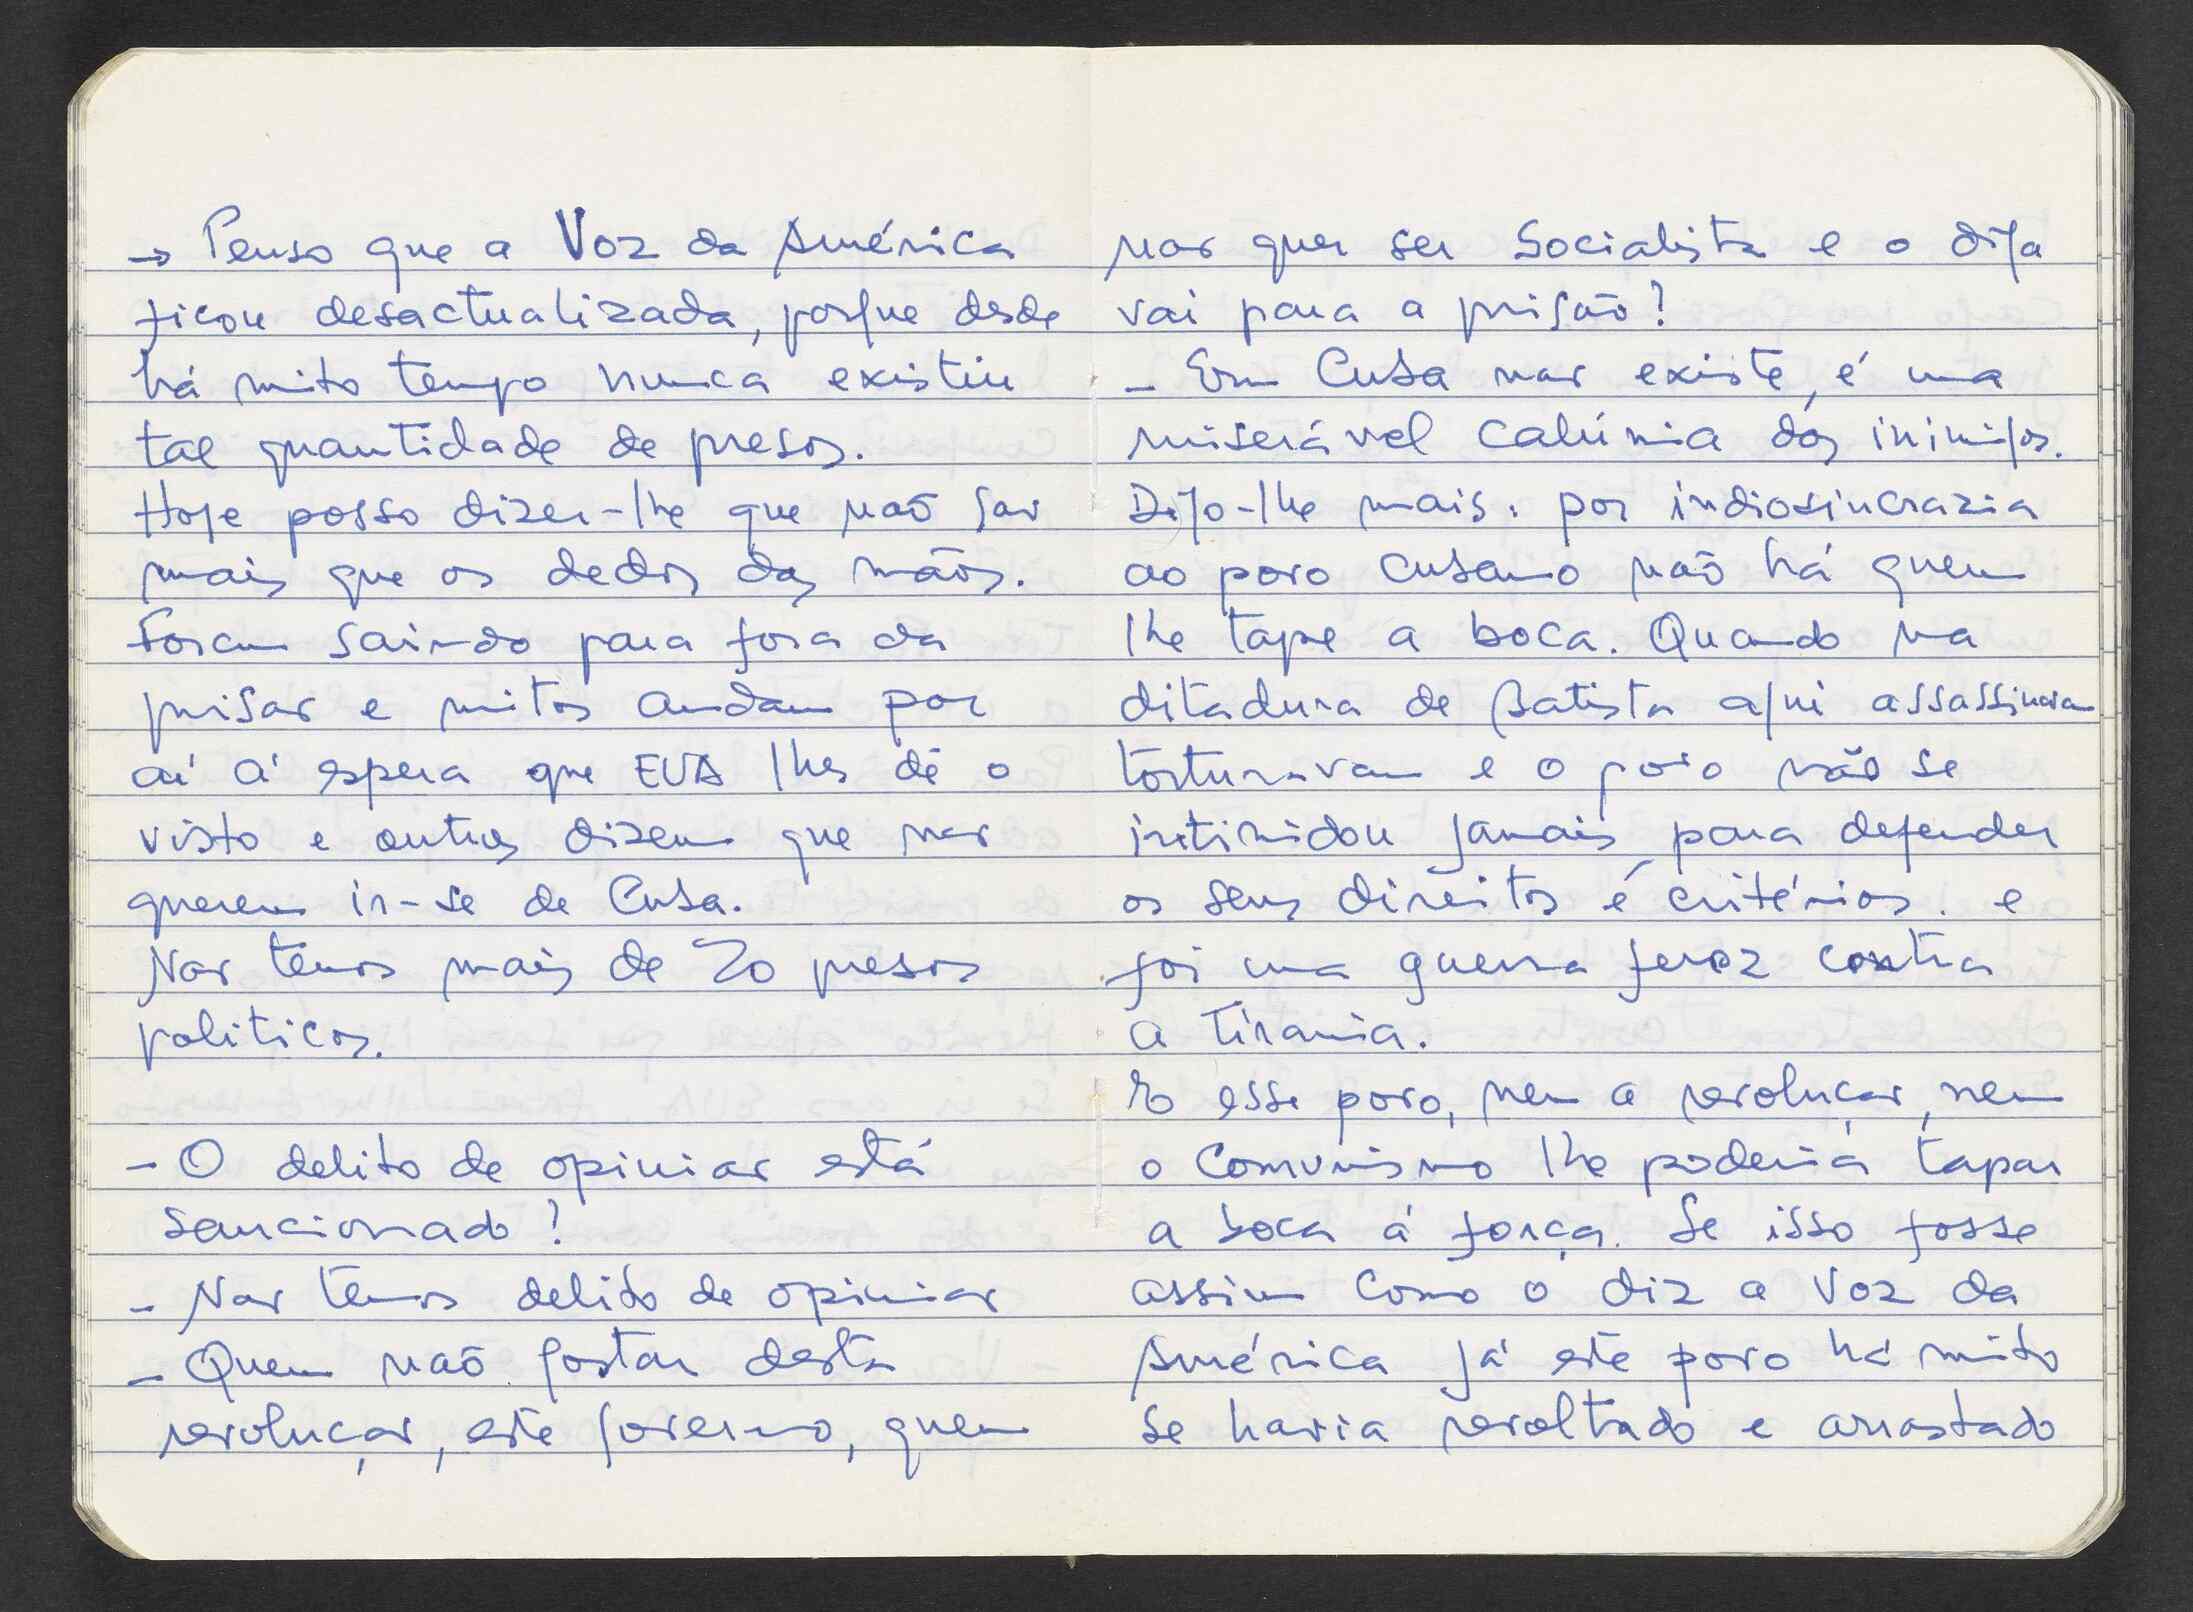 → Penso que a Voz da América
ficou desactualizada, porque desde
há muito tempo nunca existiu
tal quantidade de presos.
Hoje posso dizer-lhe que não são
mais que os dedos das mãos.
Foram saindo para fora da
prisão e muitos andam por
aí á espera que EUA lhes dê o
visto e outros dizem que não
querem ir-se de Cuba.
Não temos mais de 20 presos
politicos.
- O delito de opinião está
sancionado?
- Não temos delito de opinião
- Quem não gostar desta
revolução, este governo, quem
não quer ser Socialista e o diga
vai para a prisão?
- Em Cuba não existe, é uma
miserável calúnia dos inimigos.
Digo-lhe mais. por indiosincrazia
ao povo cubano não há quem
lhe tape a boca. Quando na
ditadura de Batista aqui assassinavam
torturavam e o povo não se
intimidou jamais para defender
os seus direitos é critérios. e
foi uma guerra feroz contra
a tirania.
E esse povo, nem a revolução, nem
o Comunismo lhe poderiá tapar
a boca á força. Se isso fosse
assim como o diz a Voz da
América já este povo há muito
se havia revoltado e arrastado